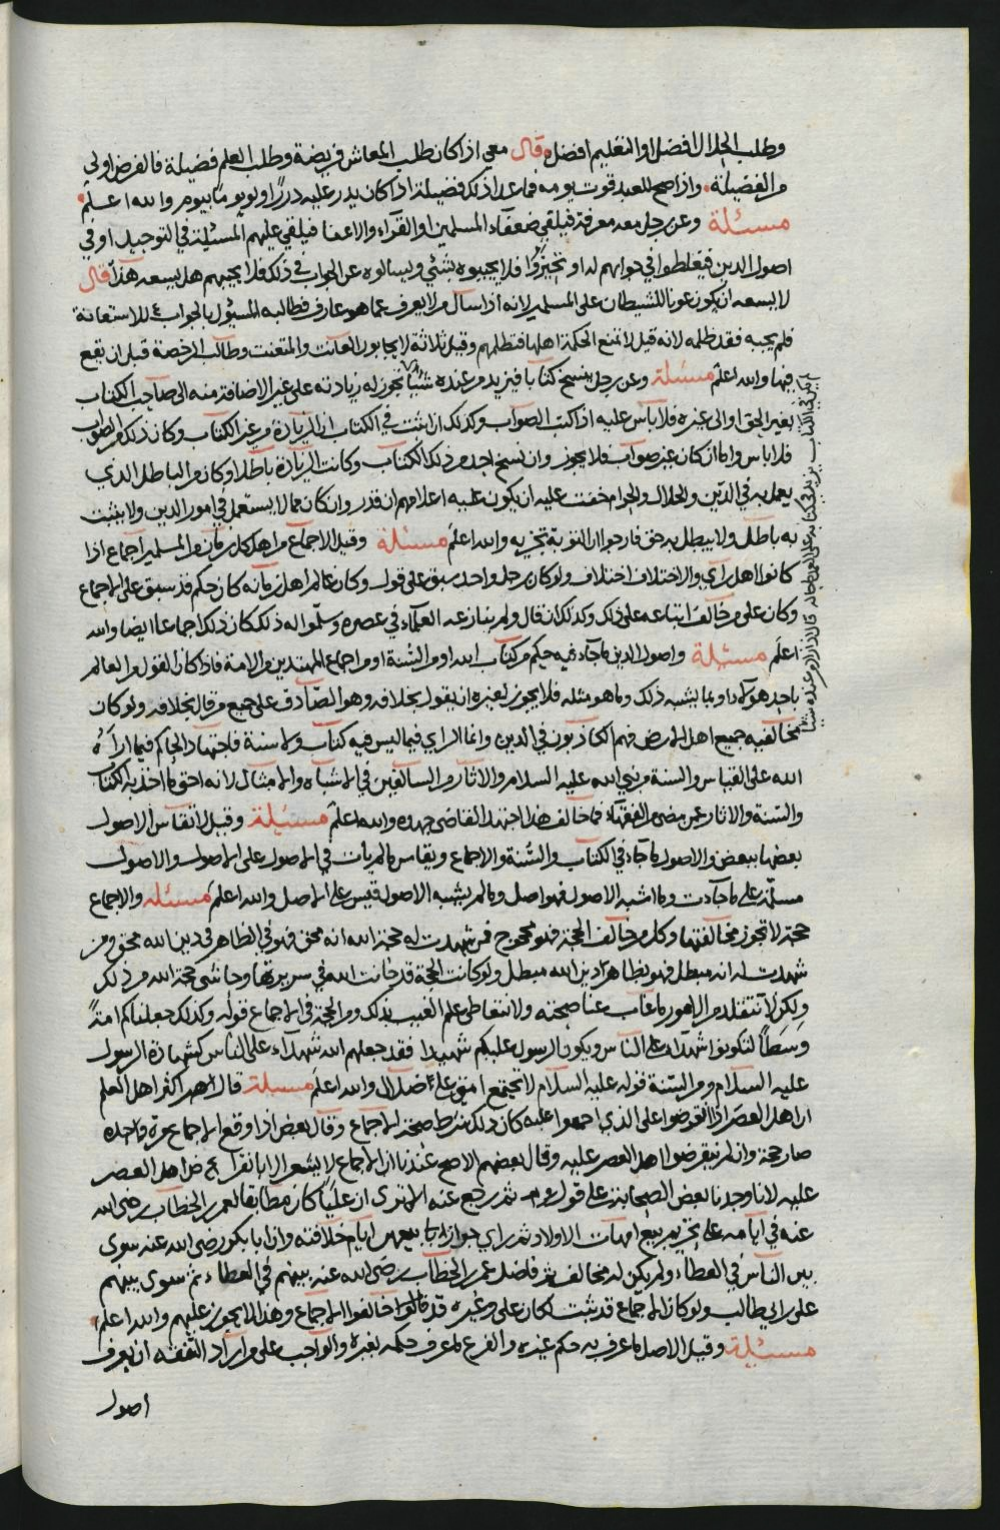 وطلب الحلال افضل او التعليم افضل قال معي اذا كان طلب المعاش فريضة وطلب العلم فضيلة فالفرض اولى
من الفضيلة واذا صح للعبد قوت يومه فما عدا ذلك فضيلة اذا كان يدر عليه دررا او يوما بيوم والله اعلم
مسئلة وعن رجل معه معرفة فيلقى ضعفاء المسلمين او القراء والاعفا فيلقي عليهم المسئلة في التوحيد او في
اصول الدين فيغلطوا في جوابهم له او فلا يجيبوه بشئي ويسالوه عن الجواب في ذلك فلا يجيبهم هل يسعه هذا قال
لا يسعه ان يكون عونا للشيطان على المسلمين لانه اذا سال من لا يعرف عما هو عارف فطالبه المسئول بالجواب للاستعانة
فلم يجبه فقد ظلمه لانه قيل لا تمنع الحكمة اهلها فتظلمهم وقيل ثلاثة لا يجابون العانت والمتعنت وطالب الرخصة قبل ان يقع
فيها والله اعلم مسئلة وعن رجل ينسخ كتابا فيزيد من عنده شيئا تجوز له زيادته على غير الاضافة منه الى صاحب الكتاب
بغير الحق او الى غيره فلا باس عليه اذا كتب الصواب وكذلك ان اثبت في الكتاب ان الزيادة من غير الكتاب وكان ذلك من الصواب
فلا باس واما ان كان غير صواب فلا يجوز وان نسخ احد من ذلك الكتاب وكانت الزيادة باطلا وكان من الباطل الذي
يعمل به في الدين والحلال والحرام خفت عليه ان يكون عليه اعلامهم ان قدر وان كان مما لا يستعمل في امور الدين ولا يثبت
به باطل ولا يبطل به حق فارجوا ان التوبة تجزيه والله اعلم مسئلة وقيل الاجماع من اهل كل زمان من المسلمين اجماع اذا
كانوا اهل راي والاختلاف اختلاف ولو كان رجل واحد سبق على قول وكان عالم اهل زمانه كان حكم قد سبق على الاجماع
وكان على من خالف اتباعه على ذلك وكذلك ان قال ولم ينازعه العلماء في عصره وسلموا له ذلك كان ذلك اجماعا ايضا والله
اعلم مسئلة واصول الدين ما جاء فيه حكم من كتاب الله او من السنة او من اجماع المهتدين من الامة فاذا كان القول من العالم
باحد هولاء او بما يشبه ذلك وما هو مثله فلا يجوز لغيره ان يقول بخلافه وهو الصادق على جميع من قال بخلافه ولو كان
مخالفيه جميع اهل الارض فهم الكاذبون في الدين وانما الراي فيما ليس فيه كتاب ولا سنة فاجتهاد الحاكم فيما اراه
الله على القياس والسنة من نبي الله عليه السلام والاثار من السالفين في الاشباه والامثال لانه احق ما اخذ به الكتاب
والسنة والاثار عن من مضى من الفقهاء فما خالف هذا اجتهد القاضي جهده والله اعلم مسئلة وقيل لا تقاس الاصول
بعضها ببعض والاصول ما جاء في الكتاب والسنة والاجماع ويقاس ما لم يات في الاصول على الاصول والاصول
مسلمة على ما جاءت وما اشبه الاصول فهو اصل وما لم يشبه الاصول قيس على الاصل والله اعلم مسئله والاجماع
حجة لا تجوز مخالفتها وكل من خالف الحجة فهو محجوج فمن شهدت له حجة الله انه محق فهو في الظاهر في دين الله محق ومن
شهدت له انه مبطل فهو بظاهر دين الله مبطل ولو كانت الحجة قد خانت الله في سريرتها وحاشى حجة الله من ذلك
ولكن لا نتقلد من الامور ما غاب عنا صحته ولا نتعاطى علم الغيب بذلك ومن الحجة في الاجماع قوله وكذلك جعلناكم امة
وسطا لتكونوا شهداء على الناس ويكون الرسول عليكم شهيدا فقد جعلهم الله شهداء على الناس كشهادة الرسول
عليه السلام ومن السنة قوله عليه السلام لا تجتمع امتي على ضلال والله اعلم مسئلة قال اكثر اهل العلم
ان اهل العصر اذا انقرضوا على الذي اجمعوا عليه كان ذلك شرط صحة الاجماع وقال بعض اذا وقع الاجماع مرة واحدة
صار حجة وان لم ينقرضوا اهل العصر عليه وقال بعضهم الاصح عندنا ان الاجماع لا يشعر الا بانقراض اهل العصر
عليه لانا وجدنا بعض الصحابة نزعلى قولهم ثم رجع عنه الا ترى ان عليا كان مطابقا لعمر بن الخطاب رضي الله
عنه في ايامه على تحريم بيع امهات الاولاد ثم راى جواز بيعهن ايام خلافته وان ابا بكر رضي الله عنه سوى
بين الناس في العطاء ولم يكن له مخالف ثم فاضل عمر بن الخطاب رضي الله عنه بينهم في العطاء ثم سوى بينهم
علي بن ابي طالب ولو كان الاجماع قد ثبت لكان علي وغيره قد خالفوا الاجماع وهذا لا يجوز عليهم والله اعلم
مسئلة وقيل الاصل ما عرف به حكم غيره والفرع ما عرف حكمه بغيره والواجب على من اراد التفقه ان يعرف
اصول